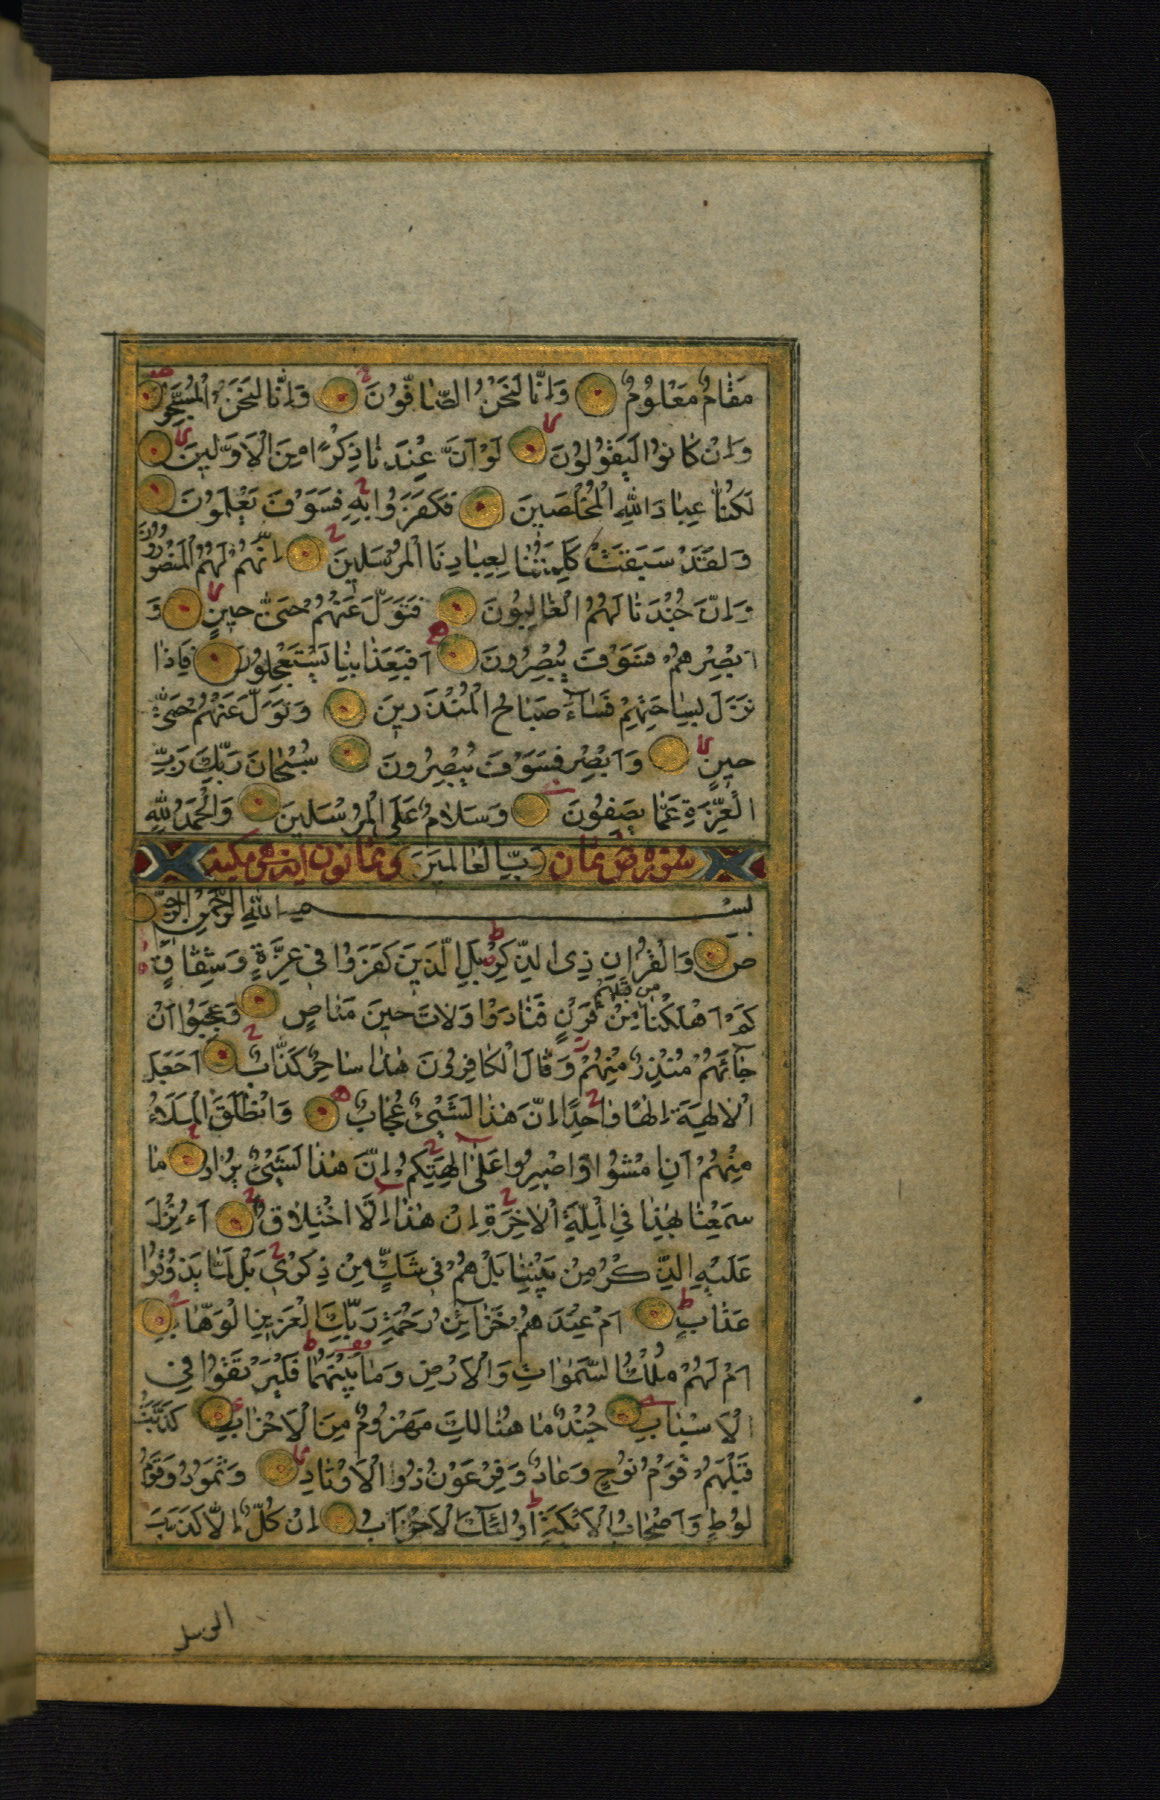 مَقَامٌ مَعْلُومٌ وَاِنَّا لَنَحْنُ الصَّافُّونَ وَاِنَّا لَنَحْنُ الْمُسَبِّحُونَ
وَاِنْ كَانُوا لَيَقُولُونَ لَوْ اَنَّ عِنْدَنَا ذِكْرًا مِنَ الْاَوَّلِينَ
لَكُنَّا عِبَادَ اللّٰهِ الْمُخْلَصِينَ فَكَفَرُوا بِهِ فَسَوْفَ يَعْلَمُونَ
وَلَقَدْ سَبَقَتْ كَلِمَتُنَا لِعِبَادِنَا الْمُرْسَلِينَ اِنَّهُمْ لَهُمُ الْمَنْصُورُونَ
وَاِنَّ جُنْدَنَا لَهُمُ الْغَالِبُونَ فَتَوَلَّ عَنْهُمْ حَتّٰى حِينٍ وَ
اَبْصِرْهُمْ فَسَوْفَ يُبْصِرُونَ اَفَبِعَذَابِنَا يَسْتَعْجِلُونَ فَاِذَا
نَزَلَ بِسَاحَتِهِمْ فَسَاءَ صَبَاحُ الْمُنْذَرِينَ وَتَوَلَّ عَنْهُمْ حَتّٰى
حِينٍ وَاَبْصِرْ فَسَوْفَ يُبْصِرُونَ سُبْحَانَ رَبِّكَ رَبِّ
الْعِزَّةِ عَمَّا يَصِفُونَ وَسَلَامٌ عَلَى الْمُرْسَلِينَ وَالْحَمْدُ لِلّٰهِ
سورة ص ثمان رَبِّ الْعَالَمِينَ وثمانون آية هى مكية
بِسْمِ اللّٰهِ الرَّحْمٰنِ الرَّحِيمِ
صٓ وَالْقُرْاٰنِ ذِى الذِّكْرِ بَلِ الَّذِينَ كَفَرُوا فِى عِزَّةٍ وَشِقَاقٍ
كَمْ اَهْلَكْنَا مِنْ قَبْلِهِمْ مِنْ قَرْنٍ فَنَادَوْا وَلَاتَ حِينَ مَنَاصٍ وَعَجِبُوا اَنْ
جَآئَهُمْ مُنْذِرٌ مِنْهُمْ وَقَالَ الْكَافِرُونَ هٰذَا سَاحِرٌ كَذَّابٌ اَجَعَلَ
الْاٰلِهَةَ اِلٰهًا وَاحِدًا اِنَّ هٰذَا لَشَيْئٌ عُجَابٌ وَانْطَلَقَ الْمَلَاُ
مِنْهُمْ اَنِ امْشُوا وَاصْبِرُوا عَلٰى اٰلِهَتِكُمْ اِنَّ هٰذَا لَشَيْئٌ يُرَادُ مَا
سَمِعْنَا بِهٰذَا فِى الْمِلَّةِ الْاٰخِرَةِ اِنْ هٰذَا اِلَّا اخْتِلَاقٌ ءَاُنْزِلَ
عَلَيْهِ الذِّكْرُ مِنْ بَيْنِنَا بَلْ هُمْ فِى شَكٍّ مِنْ ذِكْرِى بَلْ لَمَّا يَذُوقُوا
عَذَابِ اَمْ عِنْدَهُمْ خَزَآئِنُ رَحْمَةِ رَبِّكَ الْعَزِيزِ الْوَهَّابِ
اَمْ لَهُمْ مُلْكُ السَّمٰوَاتِ وَالْاَرْضِ وَمَا بَيْنَهُمَا فَلْيَرْتَقُوا فِى
الْاَسْبَابِ جُنْدٌ مَا هُنَالِكَ مَهْزُومٌ مِنَ الْاَحْزَابِ كَذَّبَتْ
قَبْلَهُمْ قَوْمُ نُوحٍ وَعَادٌ وَفِرْعَوْنُ ذُو الْاَوْتَادِ وَثَمُودُ وَقَوْمُ
لُوطٍ وَاَصْحَابُ الْاَيْكَةِ اُولٰئِكَ الْاَحْزَابُ اِنْ كُلٌّ اِلَّا كَذَّبَ
الرسل